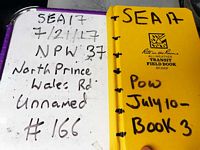 SEA17
7/21/17
NPW 37
North Prince
Wales Rd
Unnamed
# 166
SEA 17
Rite in the Rain
TRANSIT
FIELD BOOK
POW
July 10-
Book 3